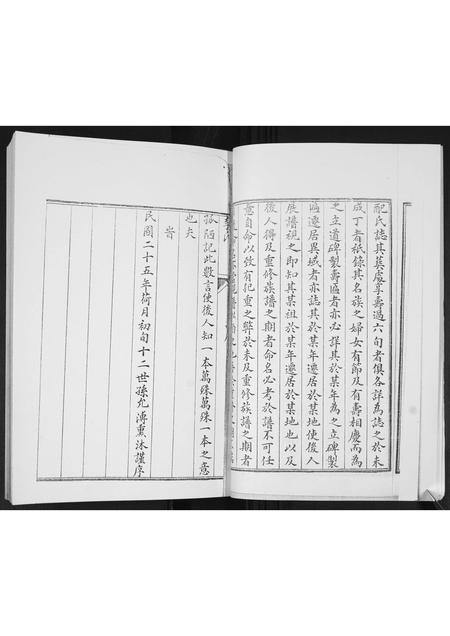 配氏誌其葬處享壽過六旬者俱各詳為誌之於未
成丁者祇錄其名族之婦女有節及有壽相慶而為
之立道碑製壽匾者亦必詳其於某年為之立碑製
匾遷居異域者亦誌其於某年遷居於某地使後人
展譜視之即知其某祖於某年遷居於某地也以及
後人得及重修族譜之期者命名必考於譜不可任
意自命以致有犯重之弊於未及重修族譜之期者
孤陋記此數言使後人知一本萬殊萬殊一本之意
也夫
旹
民國二十五年荷月初旬十二世孫允溥熏沐謹序